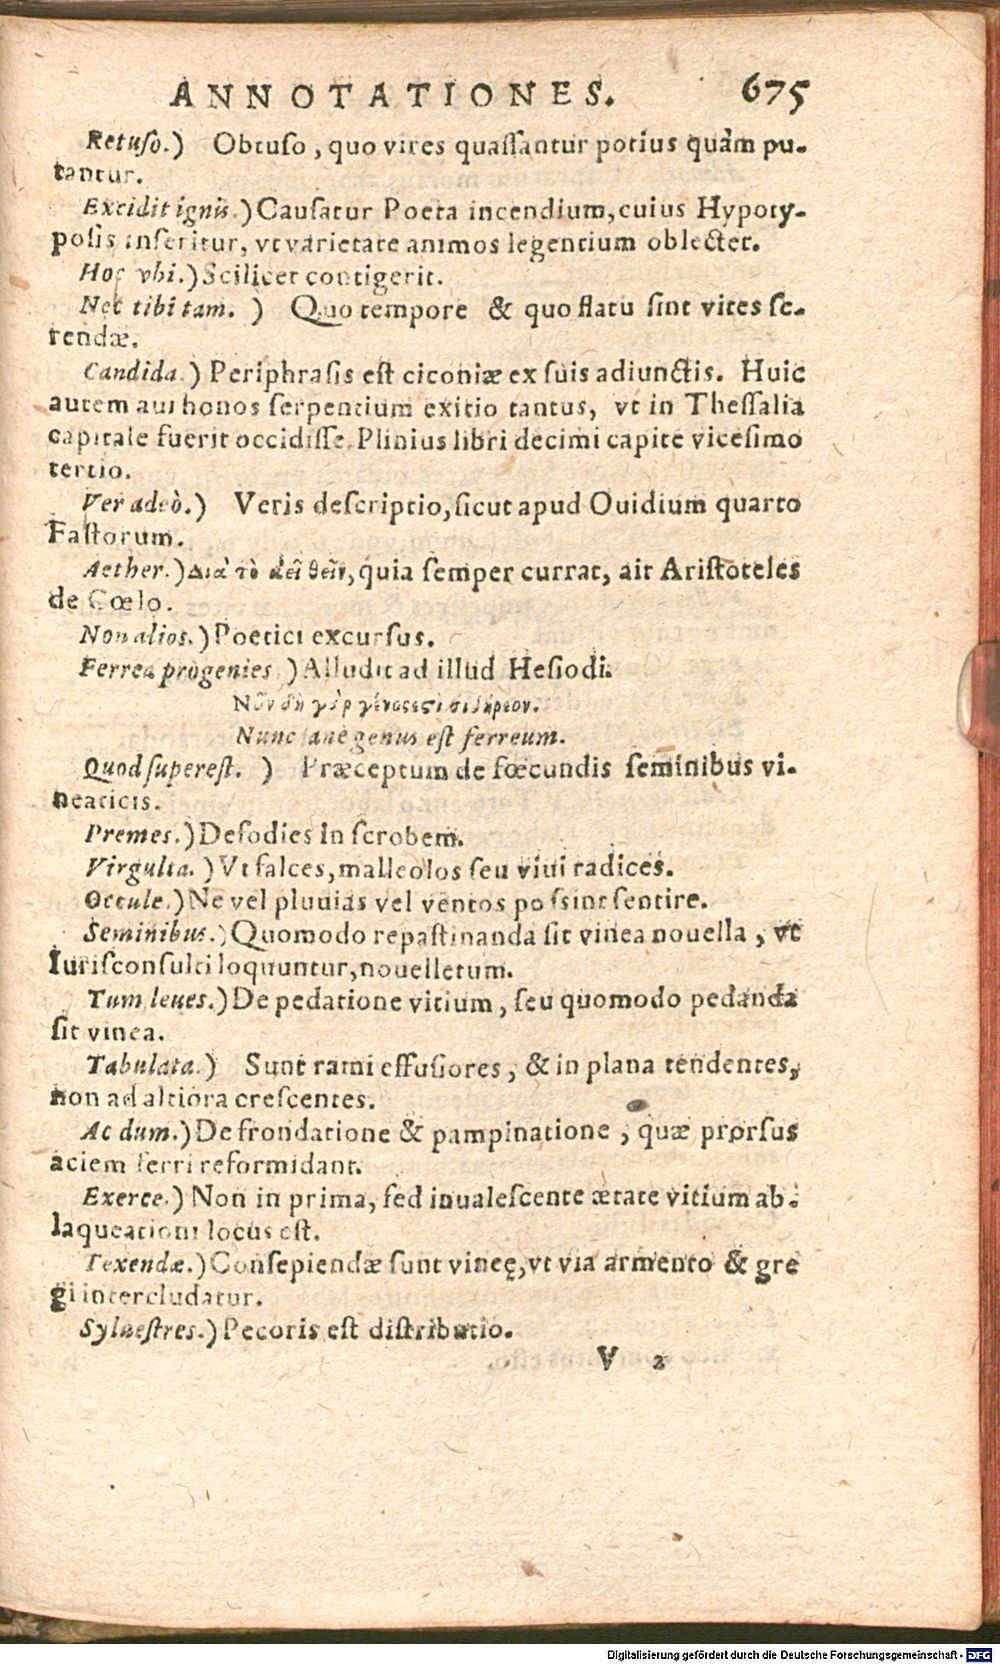 ANNOTATIONES. 675
Retuso.) Obtuso, quo vires quaſſantur potius quàm pu-
tantur.
Excidit ignis.) Cauſatur Poeta incendium, cuius Hypoty-
poſis inſeritur, vt varietate animos legentium oblectet.
Hoc vbi.) Scilicet contigerit.
Nec tibi tam.) Quo tempore & quo flatu ſint vites ſe-
rendæ.
Candida.) Periphraſis eſt ciconiæ ex ſuis adiunctis. Huic
autem aui honos ſerpentium exitio tantus, vt in Theſſalia
capitale fuerit occidiſſe. Plinius libri decimi capite viceſimo
tertio.
Ver adeò.) Veris deſcriptio, ſicut apud Ouidium quarto
Faſtorum.
Aether.) Διὰ τὸ ἀεὶ θεῖν, quia ſemper currat, ait Ariſtoteles
de Cœlo.
Non alios.) Poetici excurſus.
Ferrea progenies.) Alludit ad illud Heſiodi.
Νῦν δὴ γὰρ γένος ἐστὶ σιδήρεον.
Nunc ſane genus eſt ferreum.
Quod ſupereſt.) Præceptum de fœcundis ſeminibus vi-
neaticis.
Premes.) Defodies in ſcrobem.
Virgulta.) Vt falces, malleolos ſeu viui radices.
Occule.) Ne vel pluuias vel ventos poſsint ſentire.
Seminibus.) Quomodo repaſtinanda ſit vinea nouella, vt
Iuriſconſulti loquuntur, nouelletum.
Tum leues.) De pedatione vitium, ſeu quomodo pedanda
ſit vinea.
Tabulata.) Sunt rami effuſiores, & in plana tendentes,
non ad altiora creſcentes.
Ac dum.) De frondatione & pampinatione, quæ prorſus
aciem ferri reformidant.
Exerce.) Non in prima, ſed inualeſcente ætate vitium ab-
laqueationi locus eſt.
Texendæ.) Conſepiendæ ſunt vineę, vt via armento & gre
gi intercludatur.
Sylueſtres.) Pecoris eſt diſtributio.
V 2
Digitalisierung gefördert durch die Deutsche Forschungsgemeinschaft - DFG